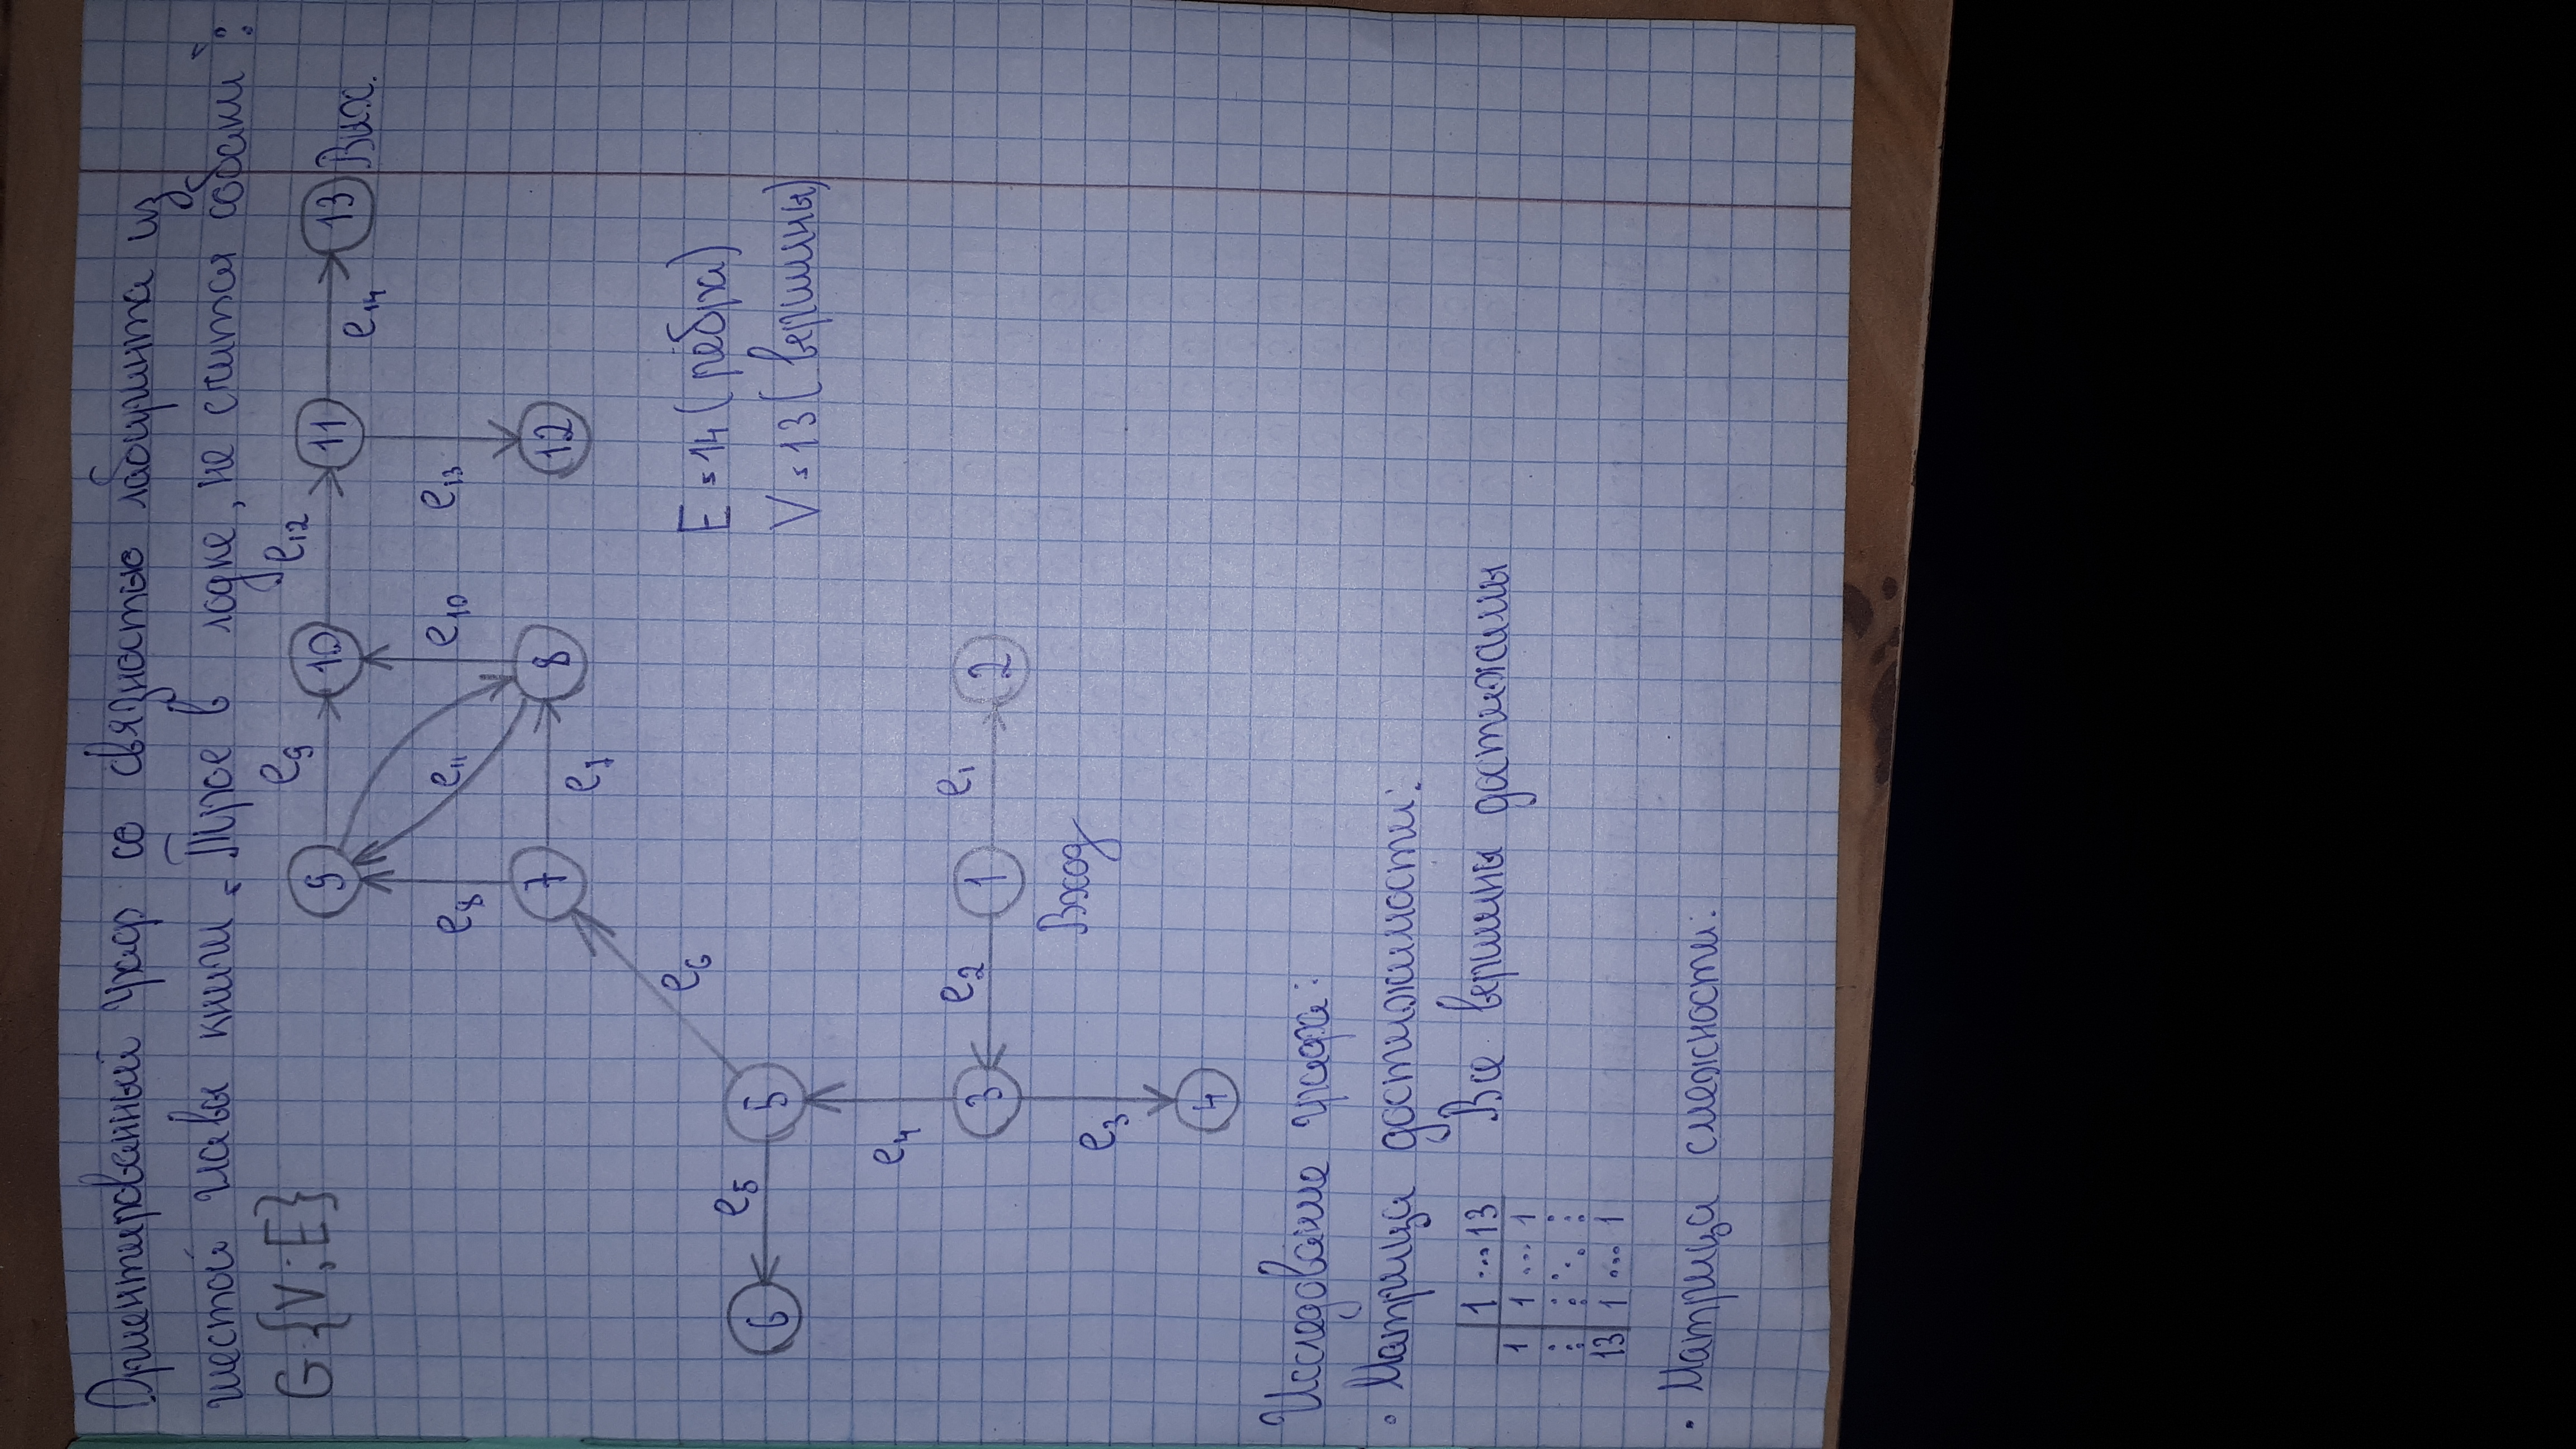 Ориентированный граф со связностью лабиринта из
шестой главы книги "Трое в лодке, не считая собаки":
G{V;E}
9 e9 10 e12 11 e14 13 Вых.
e8 e11 e10 e13
7 e7 8 12
e6
E = 14 (рёбра)
6 e5 5
V = 13 (вершины)
e4
3 e2 1 e1 2
Вход
e3
4
Исследование графа:
• Матрица достижимости:
1 ... 13 Все вершины достижимы
1 1 ... 1
⋮ ⋮ ⋱ ⋮
13 1 ... 1
• Матрица смежности: